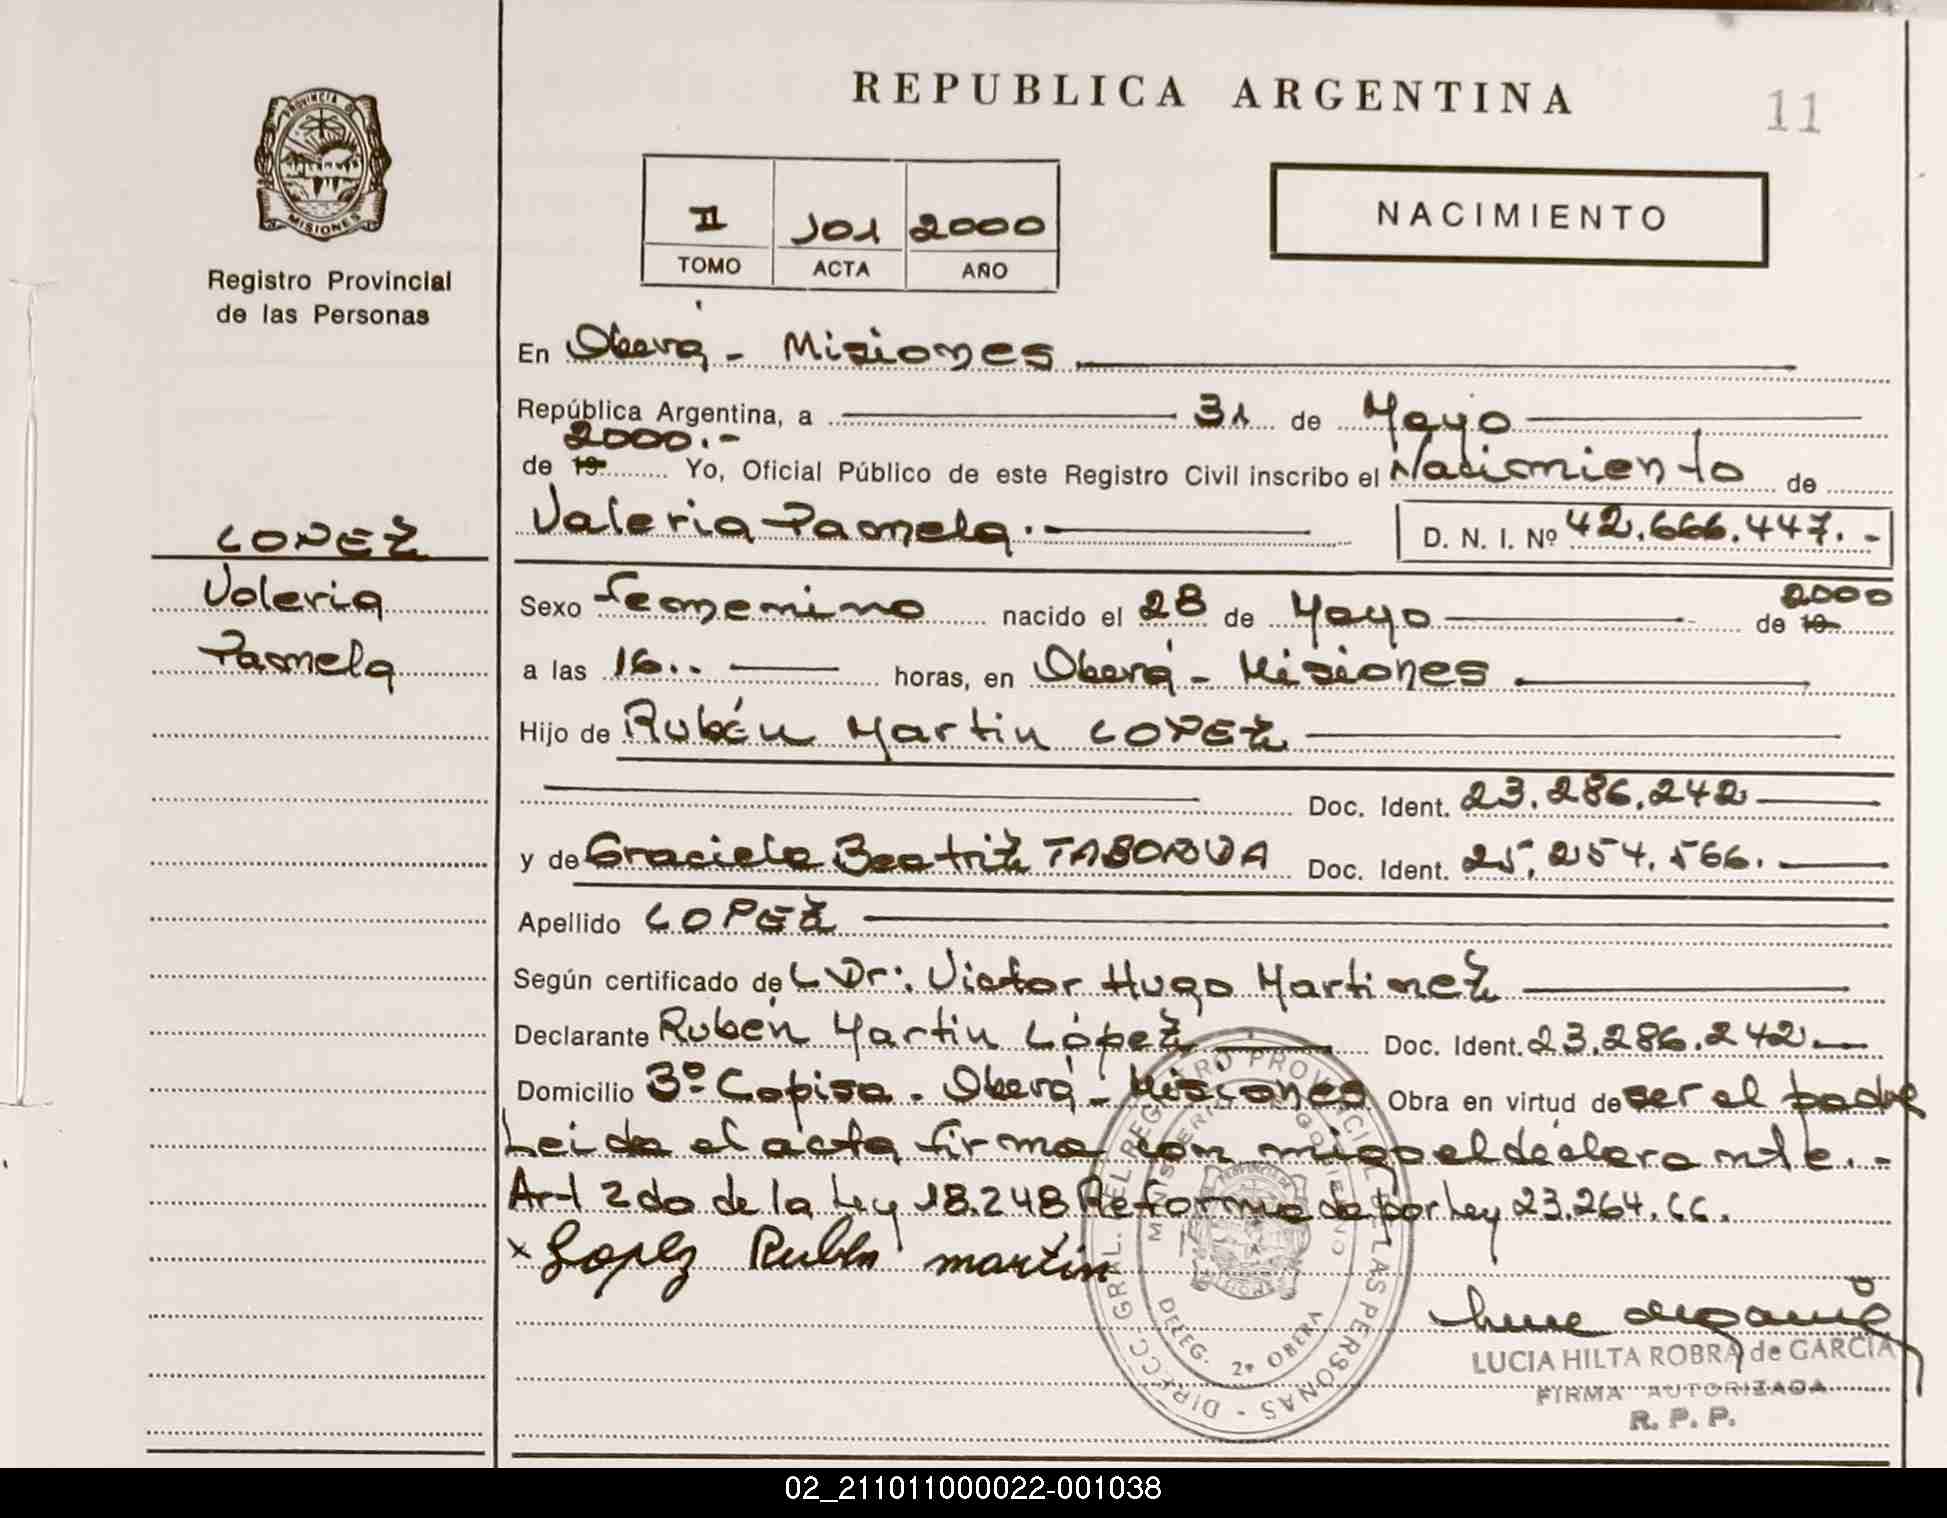 REPUBLICA ARGENTINA
11
PROVINCIA DE
MISIONES
Registro Provincial
de las Personas
II 101 2000
TOMO ACTA AÑO
NACIMIENTO
En Oberá - Misiones
República Argentina, a 31 de Mayo
2000.-
de 19 Yo, Oficial Público de este Registro Civil inscribo el Nacimiento de
Valeria Pamela.- D. N. I. Nº 42.666.447.-
LOPEZ
Valeria
Pamela
Sexo Femenino nacido el 28 de Mayo de 19 2000
a las 16.. horas, en Oberá - Misiones
Hijo de Rubén Martin LOPEZ
Doc. Ident. 23.286.242
y de Graciela Beatriz TABORDA Doc. Ident. 25.254.566.
Apellido LOPEZ
Según certificado de Dr: Victor Hugo Martinez
Declarante Rubén Martin López Doc. Ident. 23.286.242
Domicilio 3º Capisa - Oberá - Misiones Obra en virtud de ser el padre
Leida el acta firma con migo el declarante.-
Art 2do de la Ley 18.248 Reformada por Ley 23.264.
x Lopez Rubén martin
DIRECC GRL. DEL REGISTRO PROVINCIAL DE LAS PERSONAS
MINISTERIO DE GOBIERNO
DELEG. 2ª OBERA
LUCIA HILTA ROBRA de GARCIA
FIRMA AUTORIZADA
R. P. P.
02_211011000022-001038